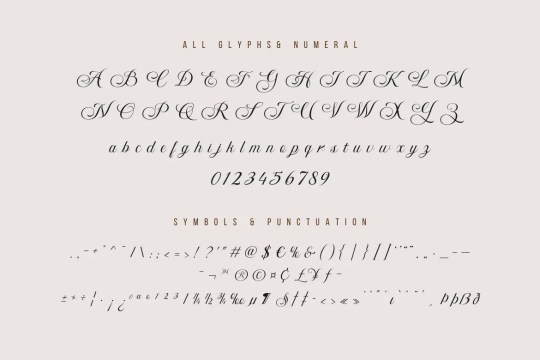 ALL GLYPHS& NUMERAL
A B C D E F G H I J K L M
N O P Q R S T U V W X Y Z
a b c d e f g h i j k l m n o p q r s t u v w x y z
0123456789
SYMBOLS & PUNCTUATION
/ \ : ; < = > ! ? ' " # @ $ € % & ( ) { | } / /
¬ ® © ¤ ¢ £ ¥ ƒ
± × ÷ ¦ · ¡ ¿ ª º ¹ ² ³ ¼ ½ ¾ ‰ µ ¶ § † ‡ ~ < > « »